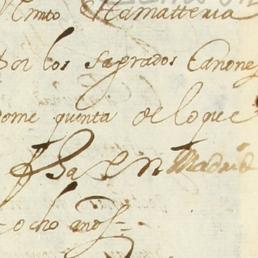 por los sagrados Canones
dome quenta de lo que
fha en Madrid
ocho años